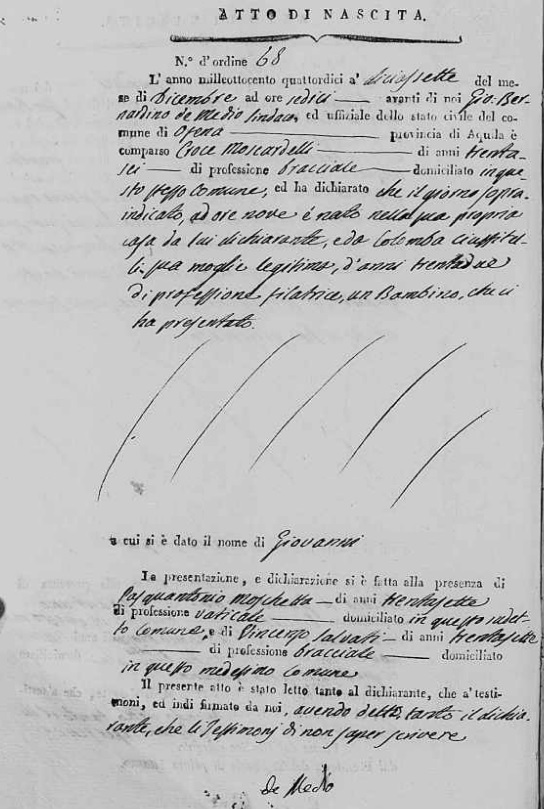 ATTO DI NASCITA.
N.° d'ordine 68
L' anno milleottocento quattordici a' diciassette del me-
se di Dicembre ad ore sedici avanti di noi Gio: Ber-
nardino de Medio Sindaco, ed uffiziale dello stato civile del co-
mune di Ofena provincia di Aquila è
comparso Croce Moscardelli di anni trenta-
sei di professione bracciale domiciliato in que-
sto stesso Comune, ed ha dichiarato che il giorno sopra-
indicato, ad ore nove é nato nella sua propria
casa da lui dichiarante, e da Colomba
sua moglie legitima, d'anni trentadue
di professione filatrice, un Bambino, che ci
ha presentato.
a cui si è dato il nome di Giovanni
La presentazione, e dichiarazione si è fatta alla presenza di
Pasquantonio Moschetta di anni trentasette
di professione vaticale domiciliato in questo sudet-
to Comune, e di Vincenzo Salvati di anni trentasette
di professione bracciale domiciliato
in questo medesimo Comune
Il presente atto è stato letto tanto al dichiarante, che a' testi-
moni, ed indi firmato da noi, avendo detto, tanto il dichia-
rante, che li Testimonj di non saper scrivere
de Medio